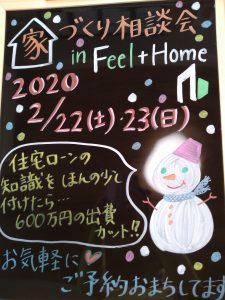 家づくり相談会
in Feel+Home
2020
2/22(土)・23(日)
住宅ローンの
知識をほんの少し
付けたら…
600万円の出費
カット!!
お気軽に
ご予約おまちしてます